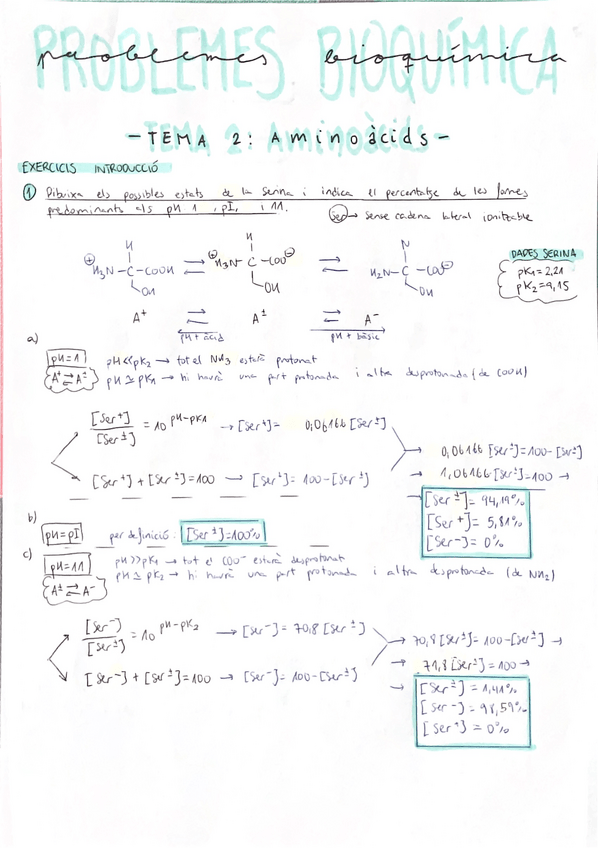 PROBLEMES BIOQUÍMICA
problemes bioquímica
- TEMA 2: Aminoàcids -
EXERCICIS INTRODUCCIÓ
① Dibuixa els possibles estats de la serina i indica el percentatge de les formes
predominants als pH 1, pI, i 11.
Ser → sense cadena lateral ionitzable
H H N
⊕H3N - C - COOH ⇌ ⊕H3N - C - COO⊖ ⇌ H2N - C - COO⊖
OH OH OH
DADES SERINA
pK1 = 2,21
pK2 = 9,15
A+ ⇌ A± ⇌ A-
pH + àcid pH + bàsic
a)
pH=1 pH<<pK2 → tot el NH3 estarà protonat
A+ ⇌ A± pH ≃ pK1 → hi haurà una part protonada i altra desprotonada (de COOH)
[Ser+]/[Ser±] = 10^pH-pK1 → [Ser+] = 0,06166 [Ser±]
→ 0,06166 [Ser±] = 100 - [Ser±]
[Ser+] + [Ser±] = 100 → [Ser+] = 100 - [Ser±]
→ 1,06166 [Ser±] = 100 →
→ [Ser±] = 94,19%
[Ser+] = 5,81%
[Ser-] = 0%
b)
pH=pI per definició: [Ser±] = 100%
c)
pH=11 pH>>pK1 → tot el COO- estarà desprotonat
A± ⇌ A- pH ≃ pK2 → hi haurà una part protonada i altra desprotonada (de NH2)
[Ser-]/[Ser±] = 10^pH-pK2 → [Ser-] = 70,8 [Ser±]
→ 70,8 [Ser±] = 100 - [Ser±] →
→ 71,8 [Ser±] = 100 →
[Ser-] + [Ser±] = 100 → [Ser-] = 100 - [Ser±]
→ [Ser±] = 1,41%
[Ser-] = 98,59%
[Ser+] = 0%